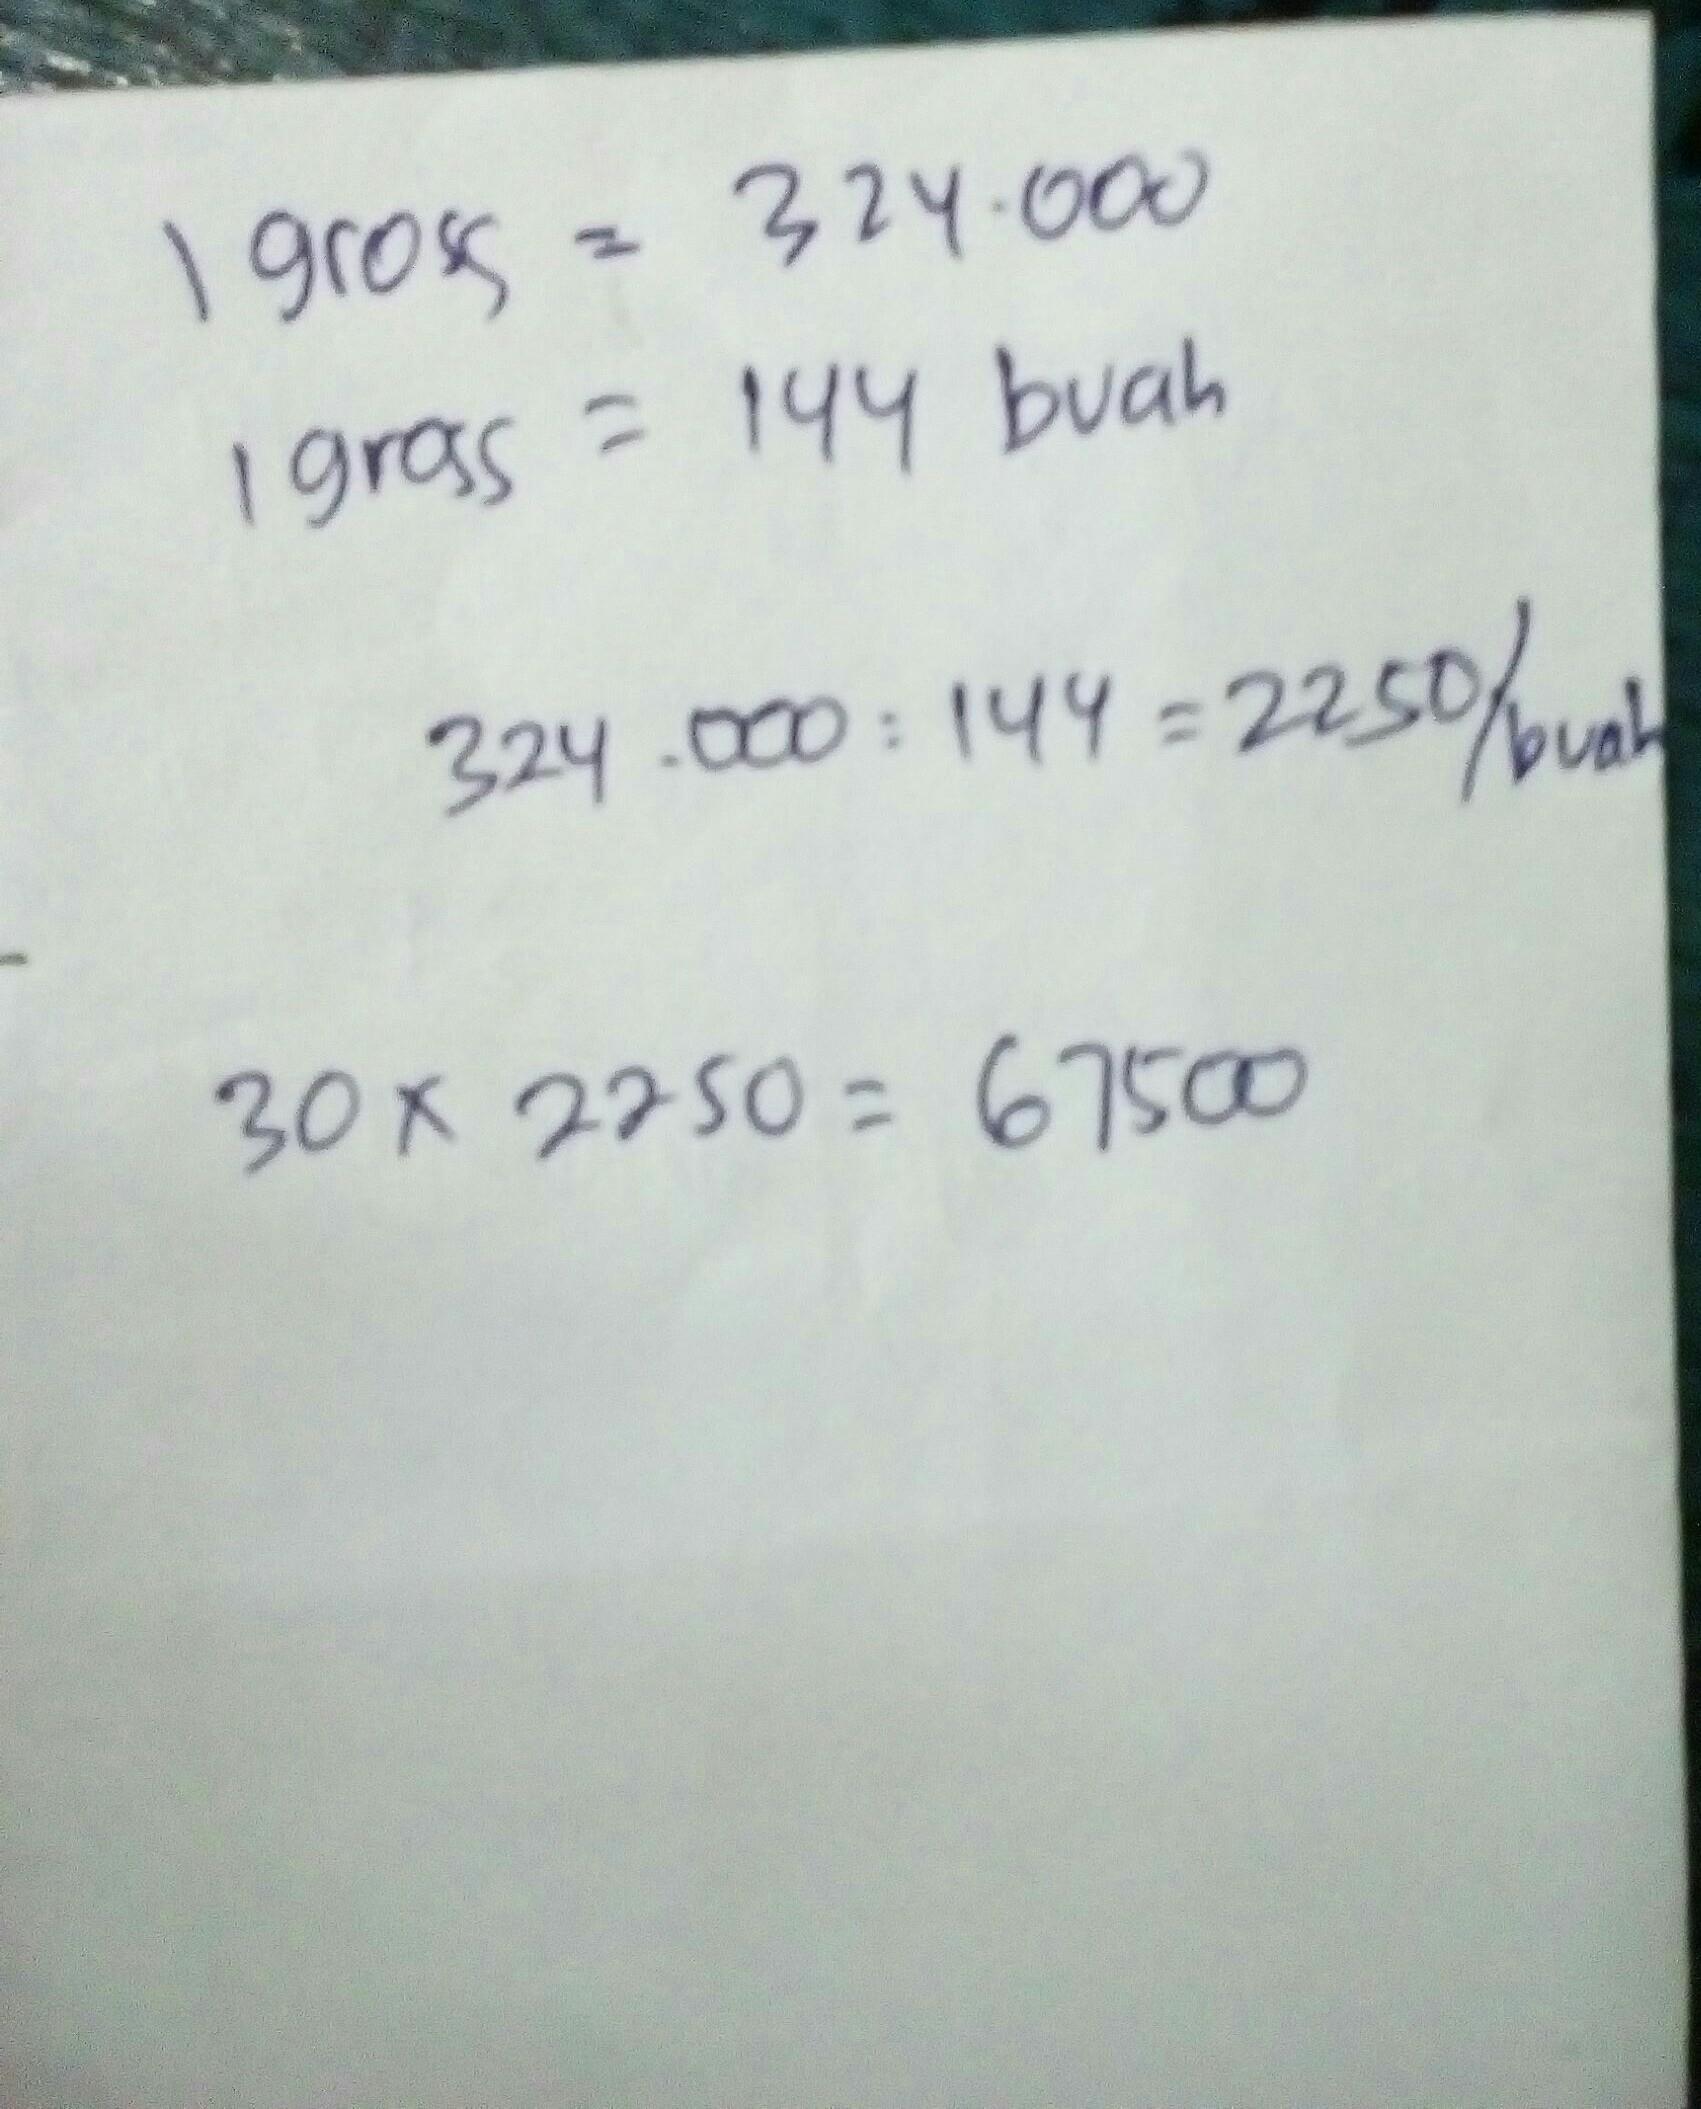 1 gross = 324.000
1 gross = 144 buah
324.000 : 144 = 2250/buah
30 x 2250 = 67500